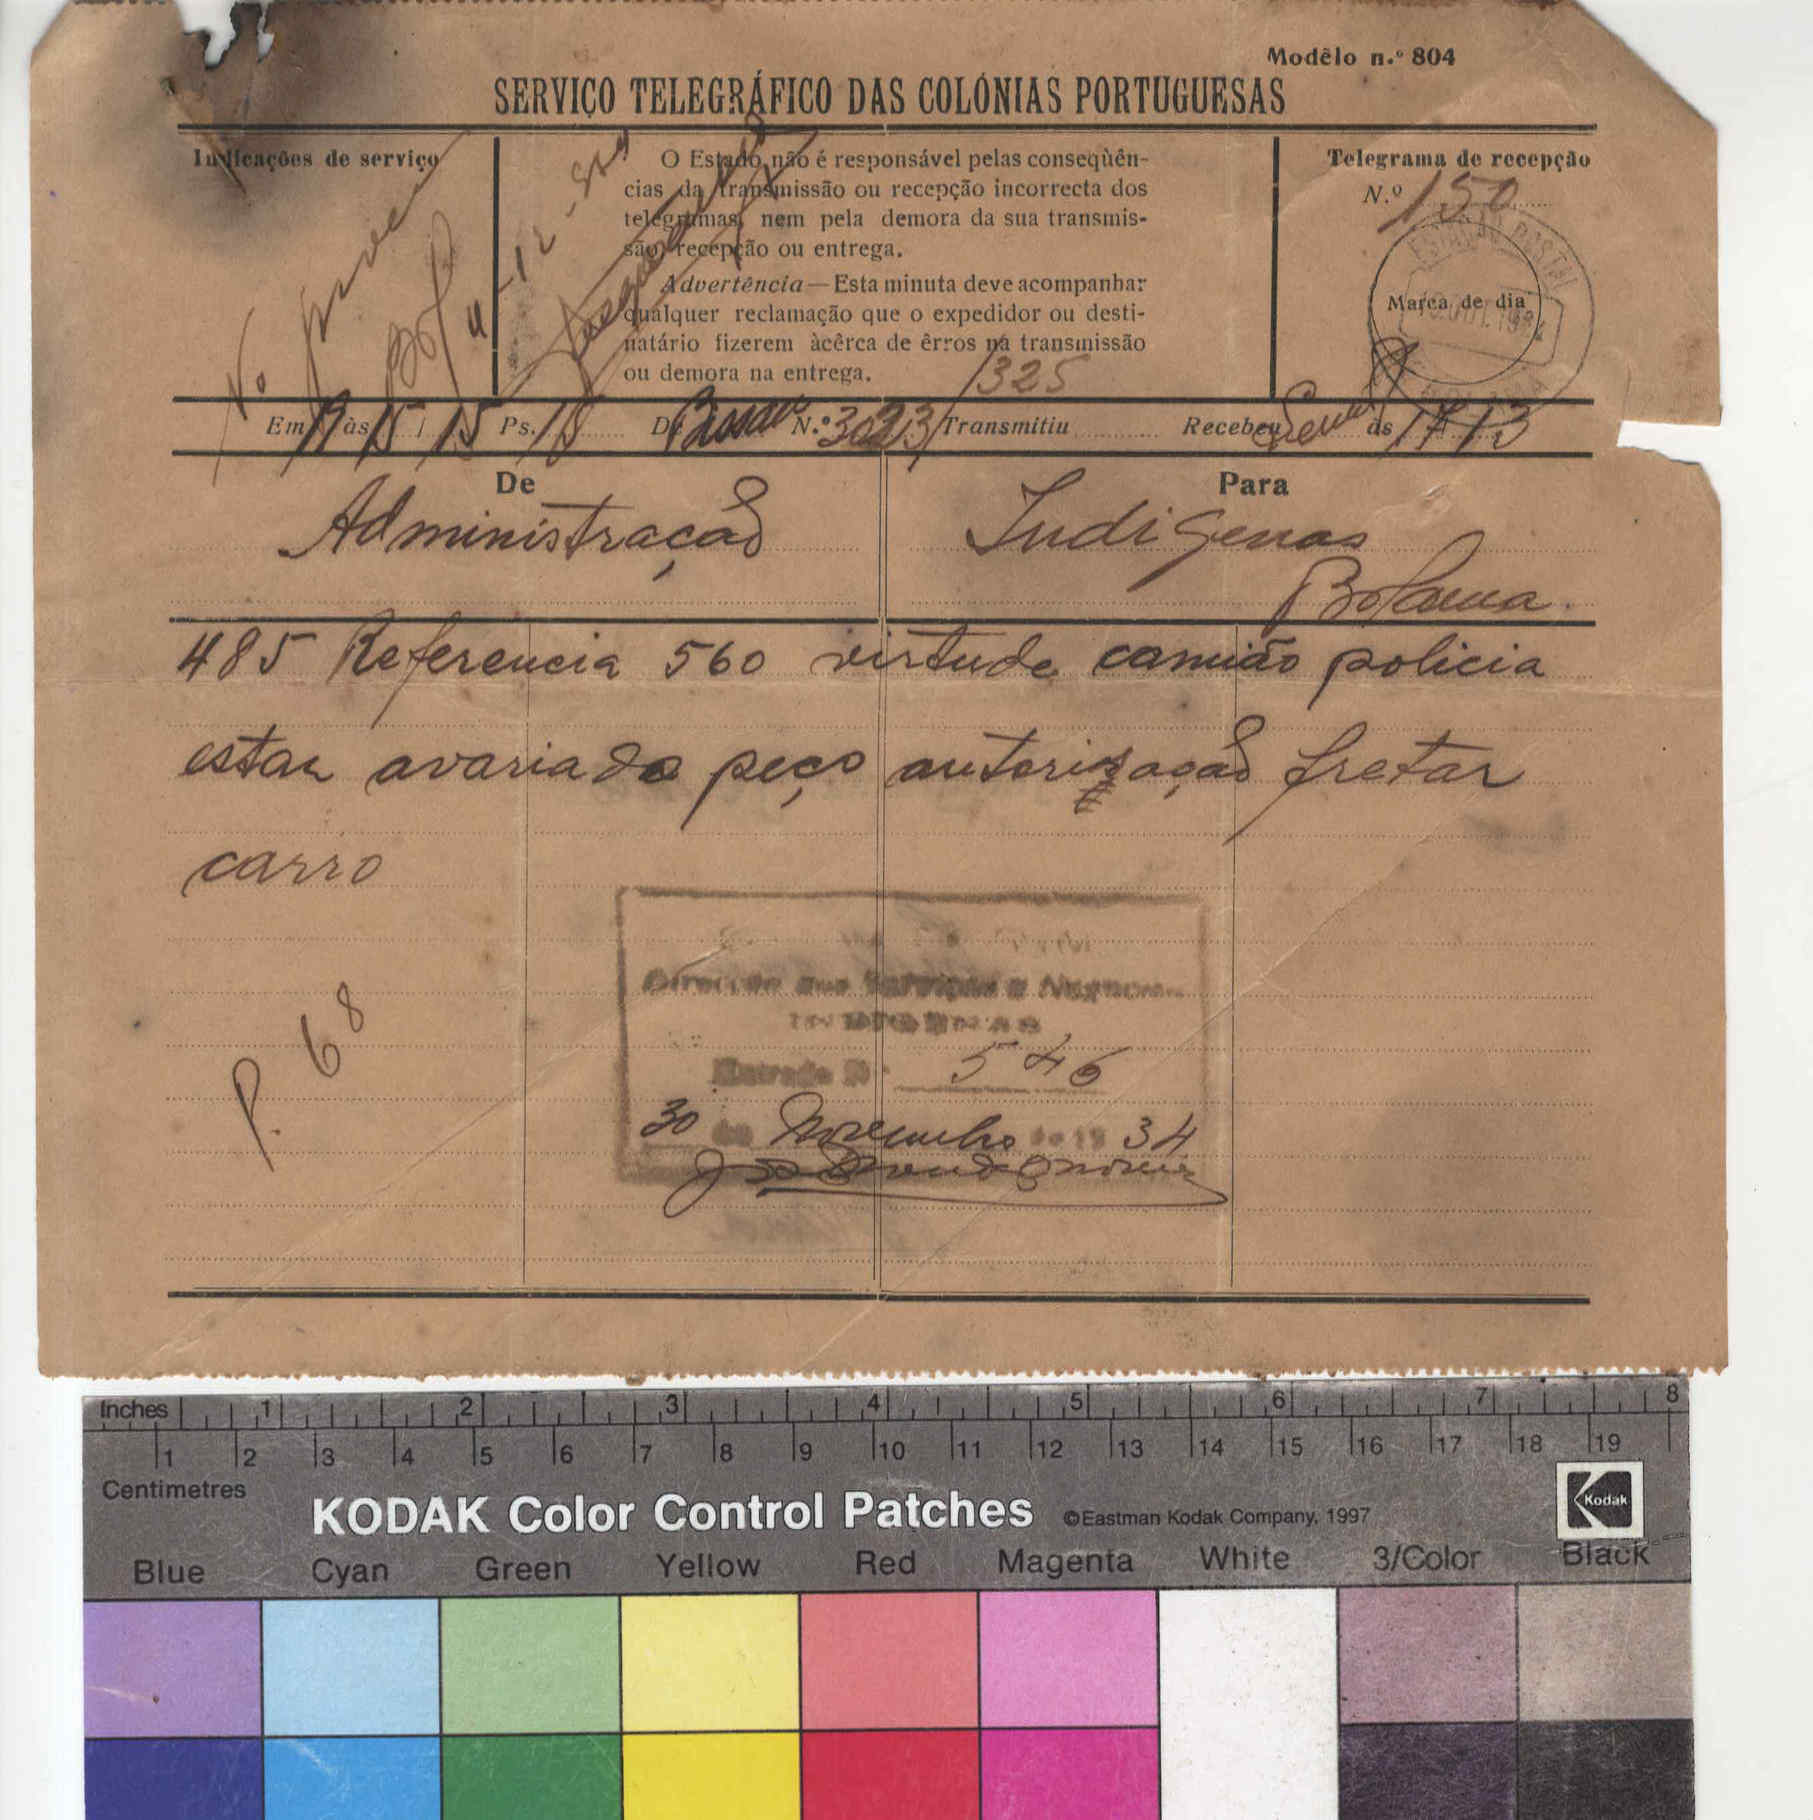 Modêlo n.º 804
SERVIÇO TELEGRÁFICO DAS COLÓNIAS PORTUGUESAS
Indicações de serviço
O Estado não é responsável pelas conseqùên-
cias da transmissão ou recepção incorrecta dos
telegramas, nem pela demora da sua transmis-
são, recepção ou entrega.
Advertência—Esta minuta deve acompanhar
qualquer reclamação que o expedidor ou desti-
natário fizerem àcêrca de êrros na transmissão
ou demora na entrega.
Telegrama de recepção
N.º 150
ESTAÇÃO POSTAL
Marca de dia
1325
Em 19 às 15 / 15 Ps. 18 De Bissau N.º 3023 Transmitiu Recebeu às 17 13
De
Para
Administração
Indigenas
Bolama
485 Referencia 560 virtude camião policia
estar avariado peço autorização fretar
carro
P. 68
Direcção dos Serviços e Negocios
INDIGENAS
Entrada Nº 546
30 de Novembro de 1934
Inches 1 2 3 4 5 6 7 8
1 2 3 4 5 6 7 8 9 10 11 12 13 14 15 16 17 18 19
Centimetres
KODAK Color Control Patches ©Eastman Kodak Company, 1997 Kodak
Blue Cyan Green Yellow Red Magenta White 3/Color Black